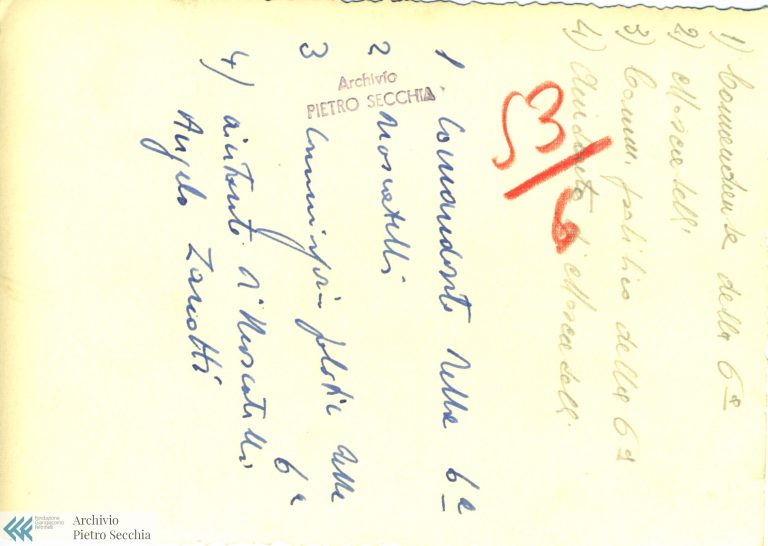 1) Comandante della 6ª
2) Moscatelli
3) Comm. politico della 6ª
4) Aiutante di Moscatelli
3/6
Archivio
PIETRO SECCHIA
1 Comandante della 6ª
2 Moscatelli
3 Commissario politic della
6ª
4) aiutante di Moscatelli
Angelo Zanotti
Fondazione
Giangiacomo
Feltrinelli
Archivio
Pietro Secchia